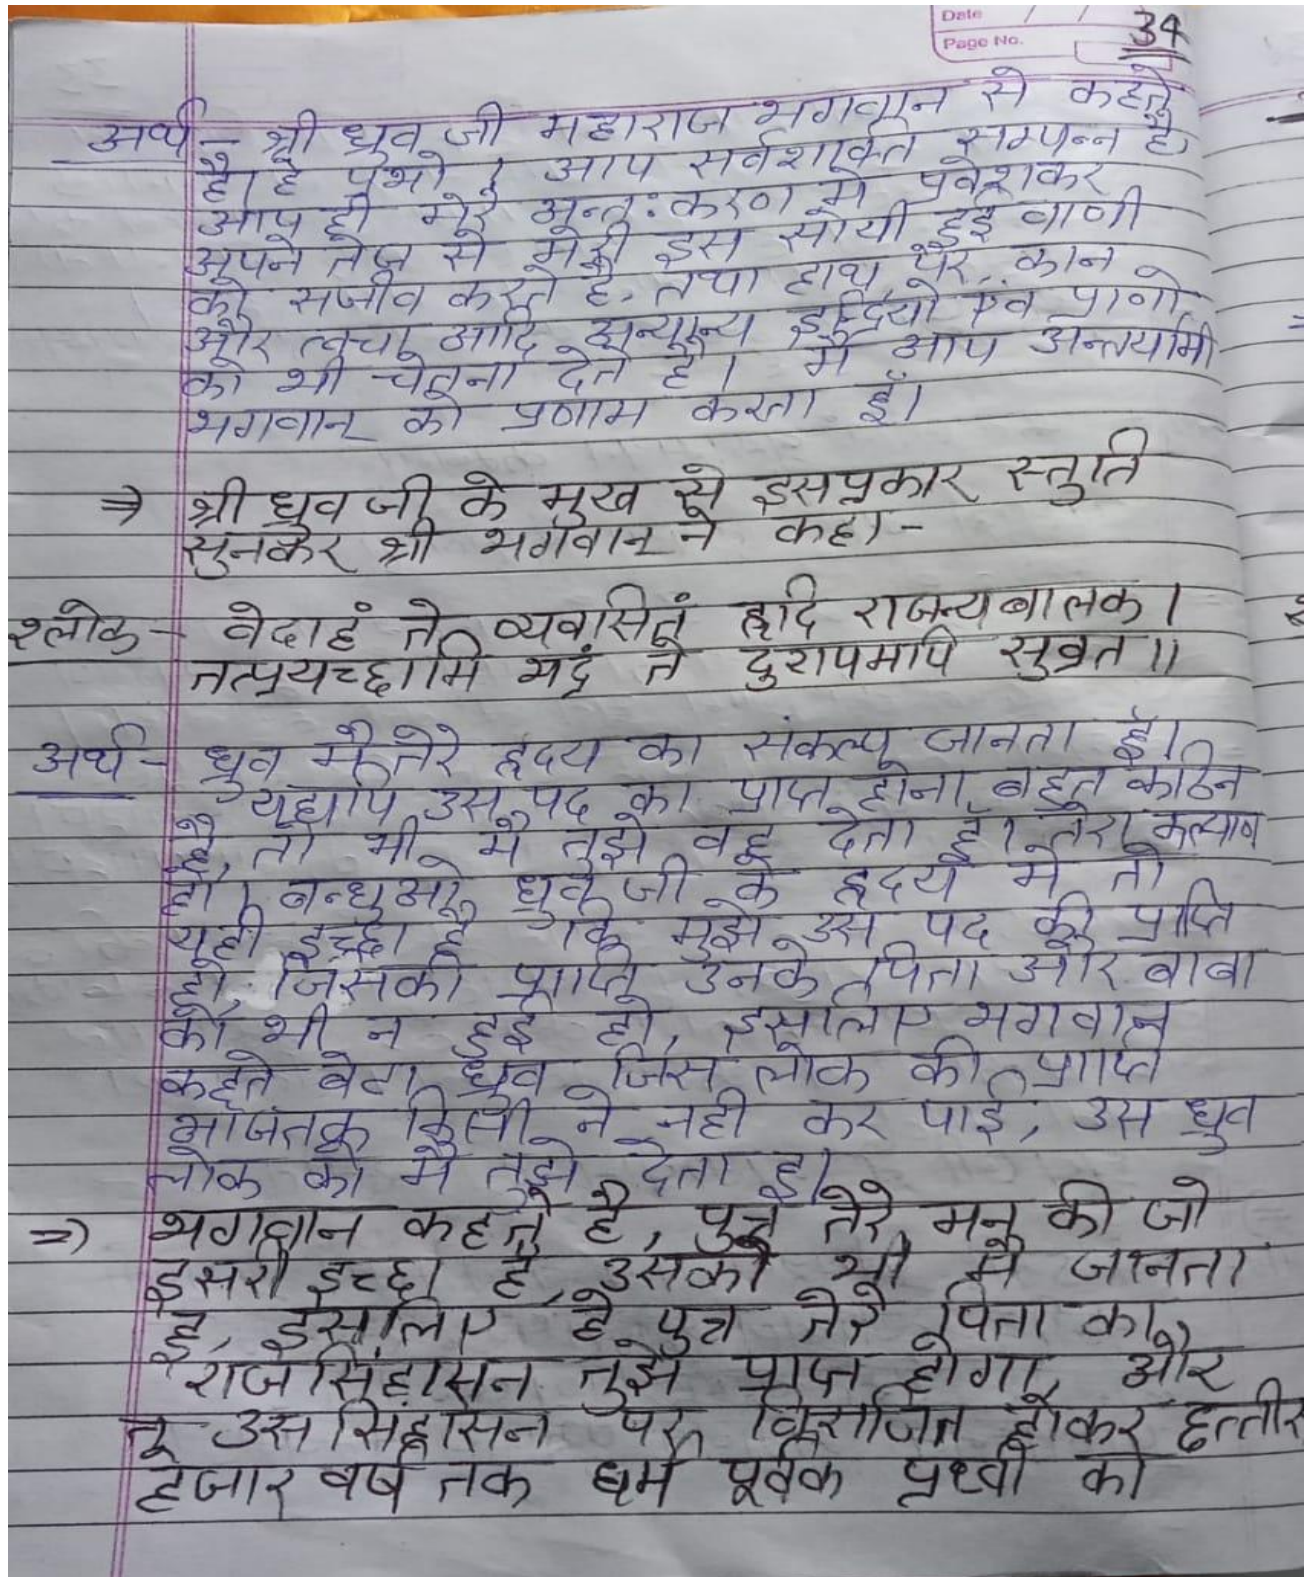 Date / /
Page No.
34
अर्थ - श्री ध्रुव जी महाराज भगवान से कहते
है। हे प्रभो ! आप सर्वशक्ति सम्पन्न है,
आप ही मेरे अन्त:करण में प्रवेशकर
अपने तेज से मेरी इस सोयी हुई वाणी
को सजीव करते है, तथा हाथ, पैर, कान
और त्वचा आदि अन्यान्य इन्द्रियो एंव प्राणो
को भी चेतना देते है। मै आप अन्तर्यामी
भगवान को प्रणाम करता हूँ।
⇒ श्री ध्रुव जी के मुख से इसप्रकार स्तुति
सुनकर श्री भगवान ने कहा -
श्लोक - वेदाहं ते व्यवसितं हृदि राजन्यबालक।
तत्प्रयच्छामि भद्रं ते दुरापमपि सुव्रत॥
अर्थ - ध्रुव मै तेरे हृदय का संकल्प जानता हूँ।
यद्यपि उस पद का प्राप्त होना बहुत कठिन
है, तो भी मै तुझे वह देता हूँ। तेरा कल्याण
हो। बन्धुओ ध्रुव जी के हृदय मे तो
यही इच्छा है कि मुझे उस पद की प्राप्ति
हो, जिसकी प्राप्ति उनके पिता और बाबा
को भी न हुई हो, इसलिए भगवान
कहते बेटा ध्रुव जिस लोक की प्राप्ति
आजतक किसी ने नही कर पाई, उस ध्रुव
लोक को मै तुझे देता हू।
⇒ भगवान कहते है, पुत्र तेरे मन की जो
दूसरी इच्छा है, उसको भी मै जानता
हू, इसलिए हे पुत्र तेरे पिता का
राजसिंहासन तुझे प्राप्त होगा, और
तू उस सिंहासन पर विराजित होकर छत्तीस
हजार वर्ष तक धर्म पूर्वक प्रथ्वी को